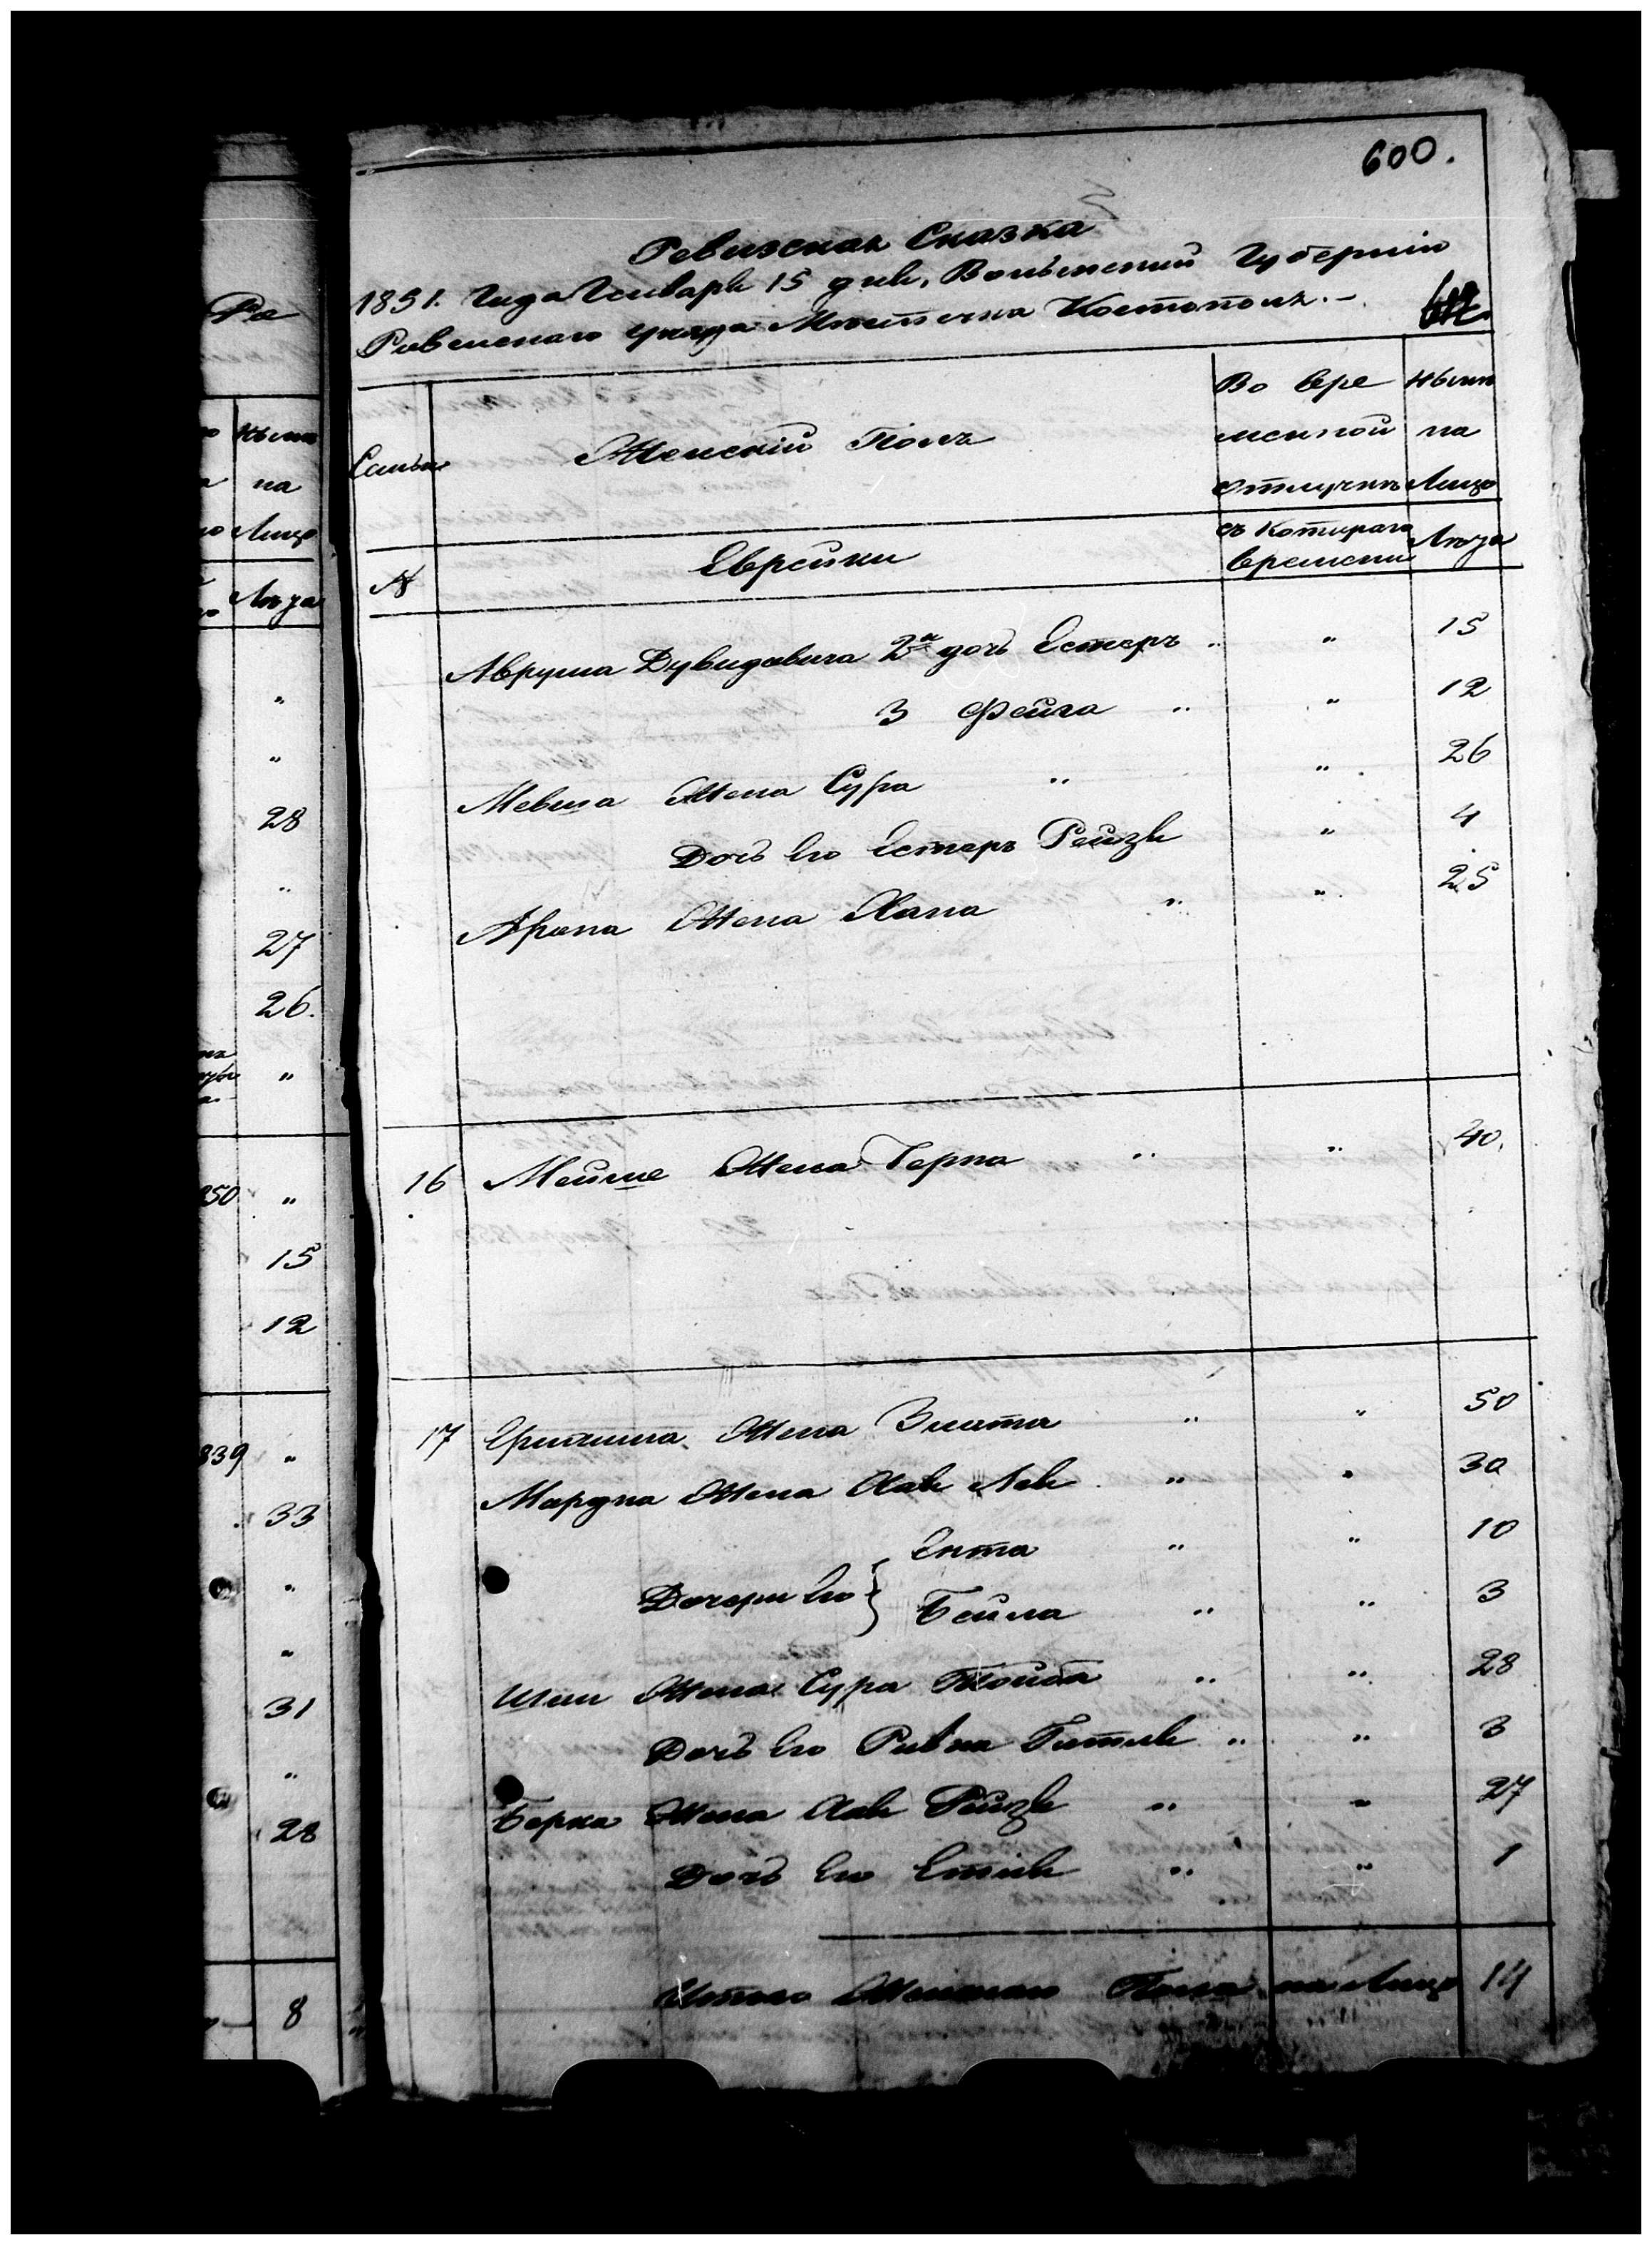 600.
Ревизская Сказка
1851. Года Генваря 15 дня, Волынской Губернии
Ровенскаго уезда Местечка Костополя. –
Ра
Семьи
Женский Полъ
Во вре
менной
отлучке
ныне
на
Лицо
№
Еврейки
съ Котораго
времени
Лета
Аврума Дувидовича 2я дочь Естеръ " " 15
3 Фейга " " 12
жена Сура " " 26
Дочь Его Естеръ Рейзя " 4
Арона Жена Хана " " 25
16 Жена " " 40.
17 Жена Злата " " 50
Мардка Жена Хая Лея " " 30
Дочери Его } Ента " " 10
Бейла " " 3
Жена Сура Тойба " " 28
Дочь Его Ривка Гитля " " 3
Берка Жена Хая Рейзя " " 27
Дочь Его " " 1
Итого Женскаго Пола на Лицо 14
ныне
на
Лицо
Лета
"
"
28
"
27
26.
"
850 "
15
12
839 "
33
"
"
31
"
28
8